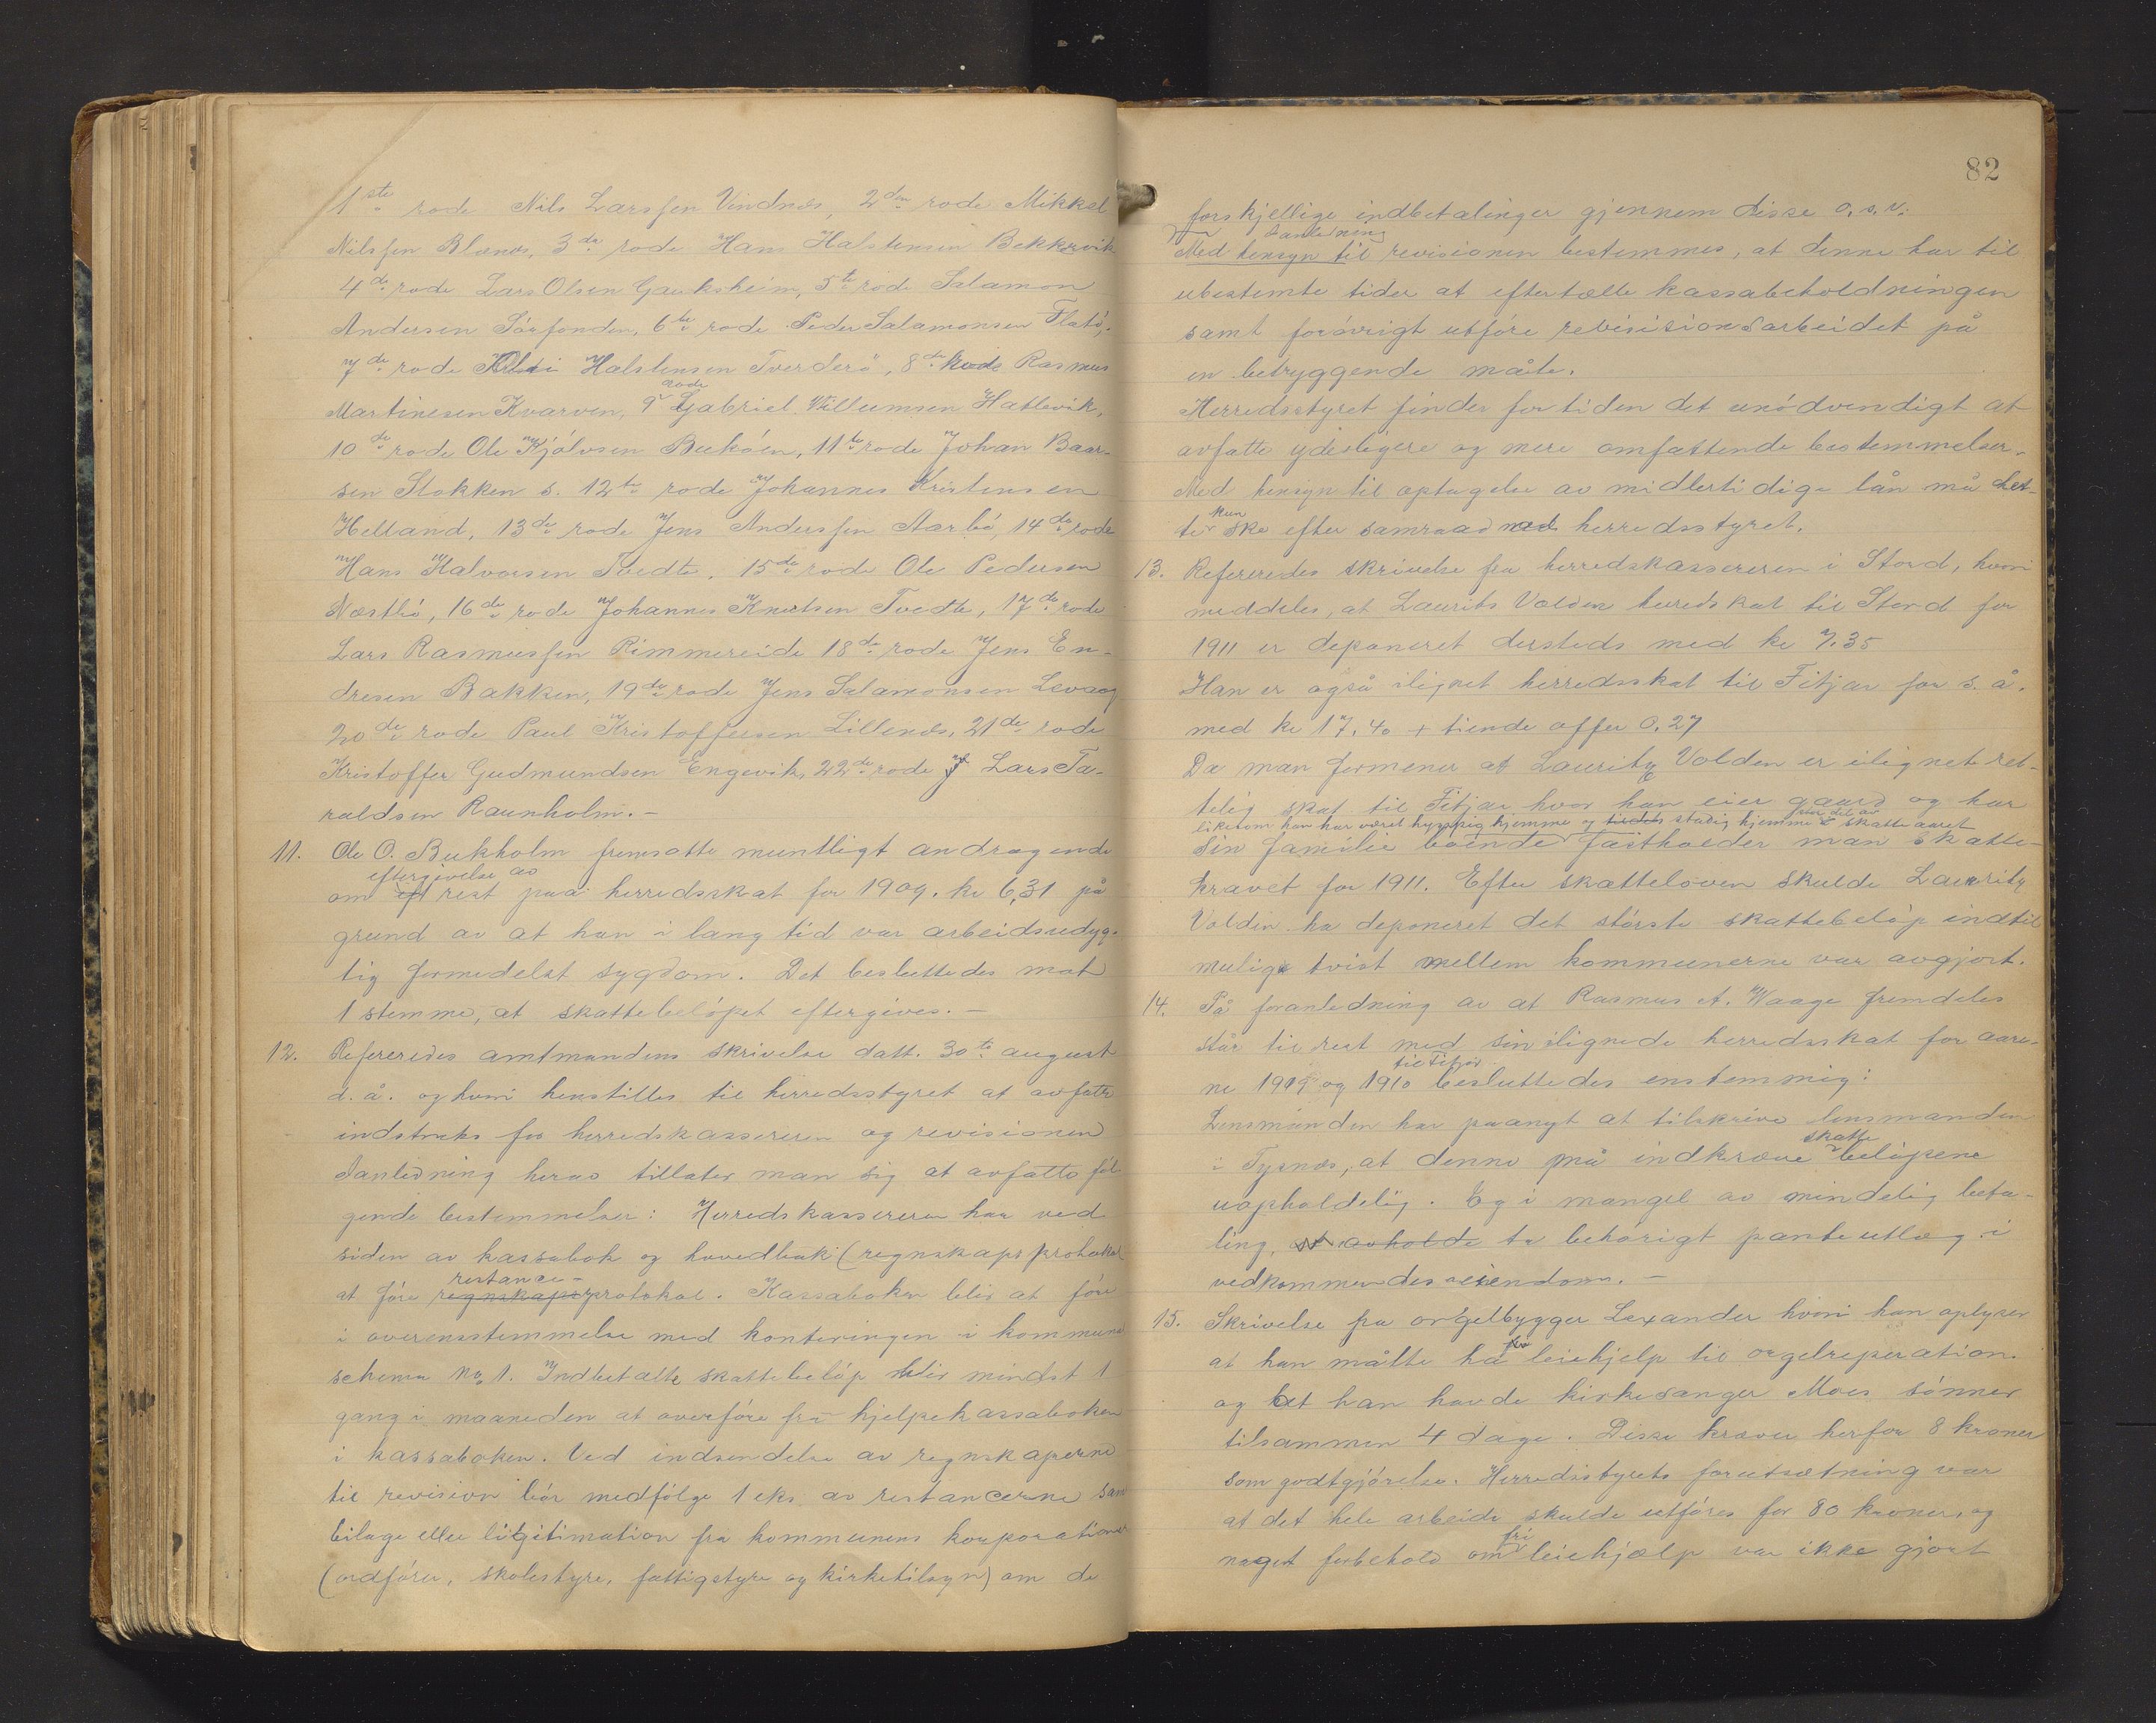 1ste rode Nils Larssen Vindnes, 2den rode Mikkel
Nilssen Blænes, 3de rode Hans Halstensen Bekkervik
4de rode Lars Olsen Gauksheim, 5te rode Salamon
Andersen Sørfonden, 6te rode Peder Salamonsen Flatø,
7de rode Halstensen Tverderö, 8de rode Rasmus
Martinesen Kvarven, 9de rode Gabriel Villumsen Hatlevik,
10de rode Ole Kjölvsen Bukóen, 11te rode Johan Baar-
sen Stokken s. 12te rode Johannes Kristensen
Helland, 13de rode Jens Anderssen Aarbö, 14de rode
Hans Halvorsen Tvedte, 15de rode Ole Pedersen
Næstbö, 16de rode Johannes Knutsen Tvedte, 17de rode
Lars Rasmussen Rimmereide 18de rode Jens En-
dresen Bakken, 19de rode Jens Salamonsen Levaag
20de rode Paul Kristoffersen Lillenes, 21de rode
Kristoffer Gudmundsen Engevik, 22de rode Lars Ta-
raldsen Raunholm.-
11. Ole O. Bukholm fremsatte muntligt andragende
om eftergivelse av rest paa herredsskat for 1909. kr 6,31 på
grund av at han i lang tid var arbeidsudyg-
tig formedelst sygdom. Det besluttedes mot
1 stemme, at skattebelöpet eftergives. -
12. Refereredes amtmandens skrivelse datt. 30te august
d. å. og hvori henstilles til herredsstyret at avfatte
indstruks for herredskassereren og revisionen
I anledning herav tillater man sig at avfatte föl-
gende bestemmelser: Herredskassereren har ved
siden av kassabok og hovedbok (regnskapsprotokol
at före restance- regnskapsprotokol. Kassaboken blir at före
i overensstemmelse med konteringen i kommune
schema No 1. Indbetalte skattebelöp blir mindst 1
gang i maaneden at overföre fra hjelpekassaboken
i kassaboken. Ved indsendelse av regnskaperne
til revision bör medfölge 1 eks. av restancerne samt
bilage eller ligitimation fra kommunens korporationer
(ordförer, skolestyre, fattigstyre og kirketilsyn) om de
82
forskjellige indbetalinger gjennem disse o. s. v.
I anledning
Med hensyn til revisionen bestemmes, at denne har til
ubestemte tider at eftertælle kassabeholdningen
samt forövrigt utföre revisionsarbeidet på
en betryggende måte.
Herredsstyret finder for tiden det unödvendigt at
avfatte ydesligere og mere omfattende bestemmelser.
Med hensyn til optagelse av midlertidige lån må det-
te kun ske efter samraad med herredsstyret.
13. Refereredes skrivelse fra herredskassereren i Stord, hvori
meddeles, at Laurits Valden herredskat til Stord for
1911 er deponeret dersteds med kr 7.35
Han er også ilignet herredsskat til Fitjar for s. å.
med kr 17.40 + tiende offer 0.27
Da man formener at Lauritz Volden er ilignet ret-
telig skat til Fitjar hvor han eier gaard og har
likesom han har været hyppig hjemme og stadig hjemme en del av skatteaaret
sin familie boende fastholder man skatte-
kravet for 1911. Efter skatteloven skulde Lauritz
Voldin ha deponeret det störste skattebelöp indtil
mulige tvist mellem kommunerne var avgjort.
14. På foranledning av at Rasmus A. Waage fremdeles
står til rest med sin ilignede herredsskat for aare-
ne 1909 og 1910 til Fitjar besluttedes enstemmig:
Lensmanden har paanyt at tilskrive lensmanden
i Tysnes, at denne må indkræve skattebelöpene
uopholdelig. Og i mangel av mindelig beta-
ling, at avholde ta behörigt panteutlæg i
vedkommendes eiendom. -
15. Skrivelse fra orgelbygger Lexander hvori han oplyser
at han måtte ha fri leiehjelp til orgelreperation.
og at han havde kirkesanger Moes sönner
tilsammen 4 dage. Disse kræver herfor 8 kroner
som godtgjörelse. Herredsstyrets forutsætning var
at det hele arbeide skulde utföres for 80 kroner, og
noget forbehold om fri leiehjælp var ikke gjort